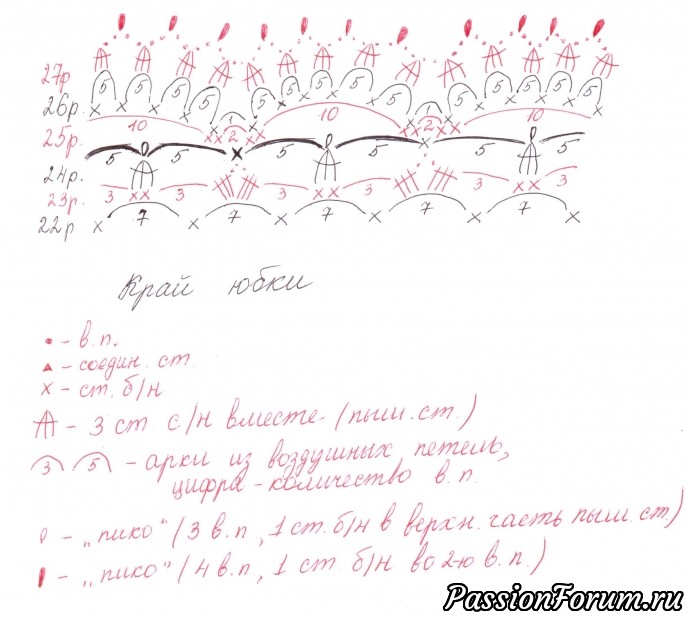 27р.
5 5 5 5 5 5 5 5 5 5 5 5 5
26р.
1 1
10 2 10 2 10
25р.
5 5 5 5 5 5
24р.
3 3 3 3 3 3
23р.
7 7 7 7 7
22р
Край юбки
• - в.п.
▲ - соедин. ст.
× - ст. б/н
- 3 ст. с/н вместе (пыш. ст.)
3 5 - арки из воздушных петель,
цифра - количество в.п.
- „пико" (3 в.п, 1 ст. б/н в верхн. часть пыш. ст.)
- „пико" (4 в.п, 1 ст. б/н во 2-ю в.п.)
PassionForum.ru